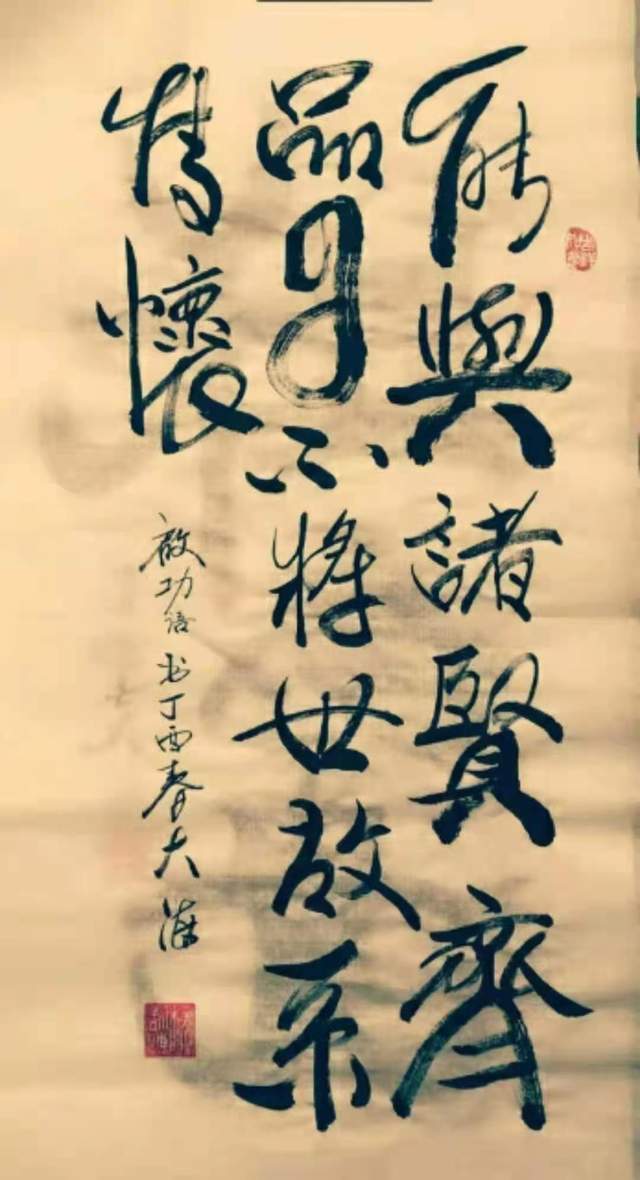 所與諸賢齊
品目不將世故系
情懷
啟功語书丁酉春大海